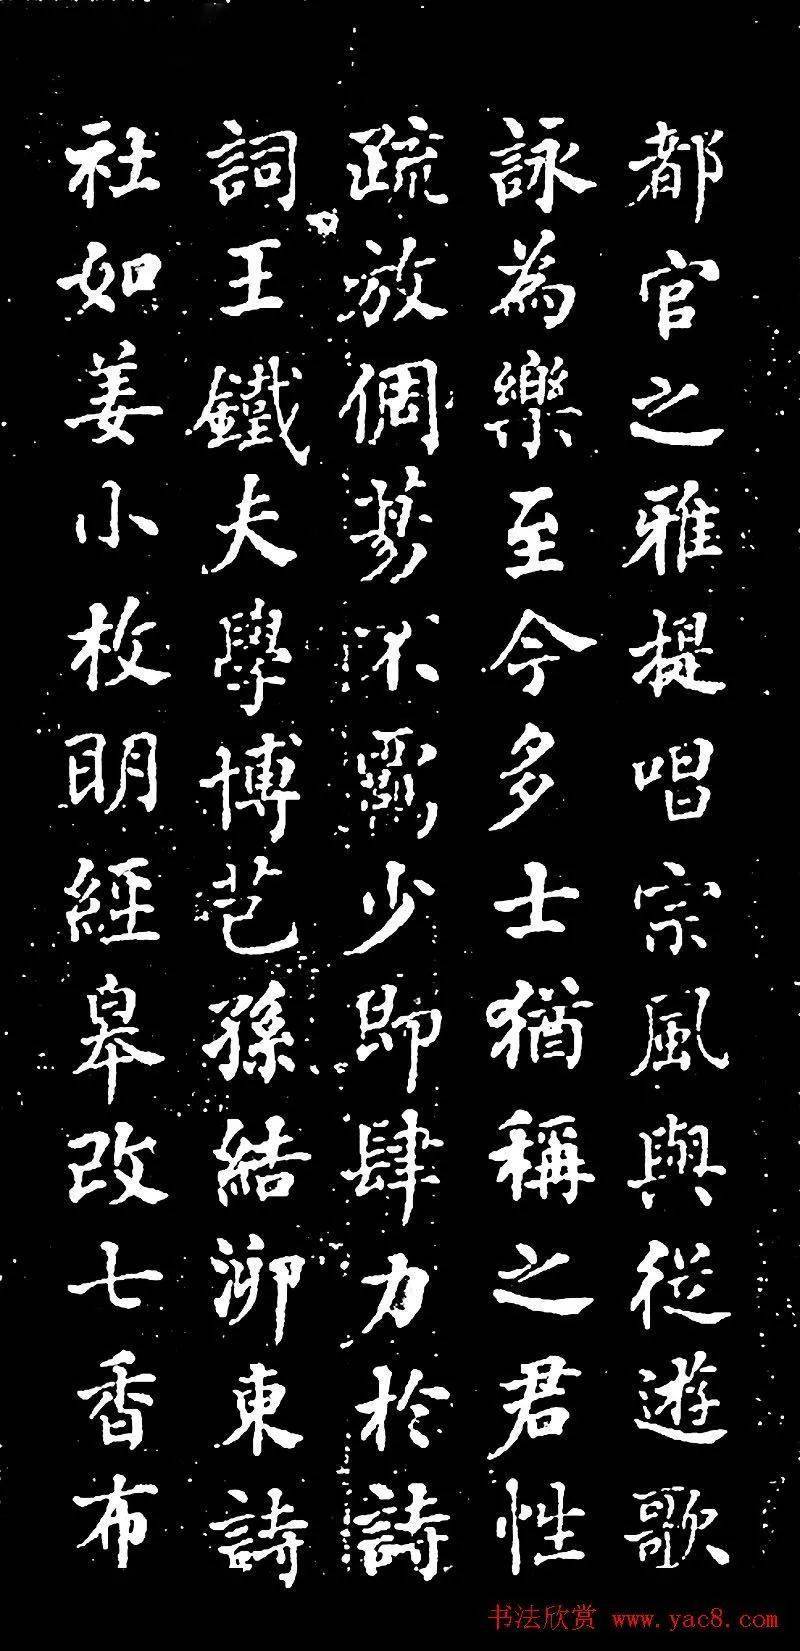 都官之雅提唱宗風與從遊歌
詠為樂至今多士猶稱之君性
疏放倜不羈少即肆力於詩
詞王鐵夫學博芑孫結泖東詩
社如姜小枚明經皋改七香布
书法欣赏 www.yac8.com